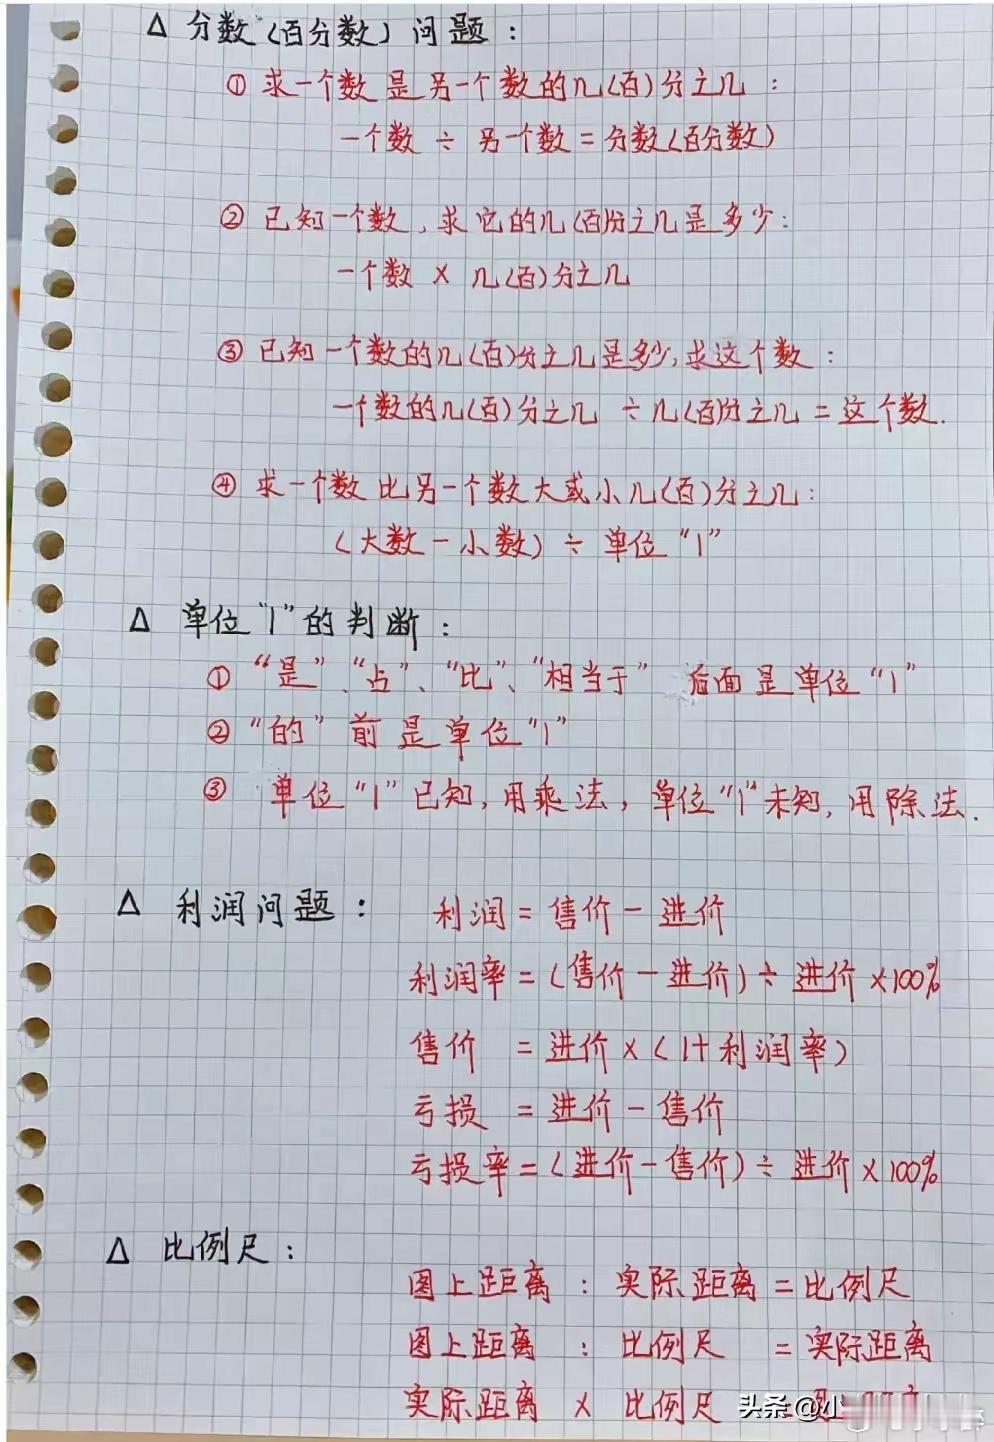 △ 分数(百分数)问题：
① 求一个数是另一个数的几(百)分之几：
一个数 ÷ 另一个数 = 分数(百分数)
② 已知一个数，求它的几(百)分之几是多少：
一个数 × 几(百)分之几
③ 已知一个数的几(百)分之几是多少,求这个数：
一个数的几(百)分之几 ÷ 几(百)分之几 = 这个数.
④ 求一个数比另一个数大或小几(百)分之几：
(大数 - 小数) ÷ 单位“1”
△ 单位“1”的判断：
① “是”、“占”、“比”、“相当于” 后面是单位“1”
② “的”前是单位“1”
③ 单位“1”已知，用乘法，单位“1”未知，用除法.
△ 利润问题： 利润 = 售价 - 进价
利润率 = (售价 - 进价) ÷ 进价 × 100%
售价 = 进价 × (1+利润率)
亏损 = 进价 - 售价
亏损率 = (进价 - 售价) ÷ 进价 × 100%
△ 比例尺：
图上距离 : 实际距离 = 比例尺
图上距离 : 比例尺 = 实际距离
实际距离 × 比例尺
头条 @小